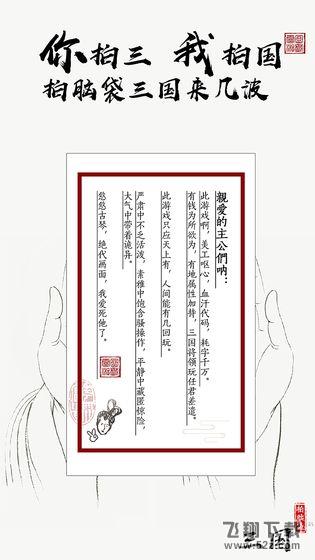 你拍三 我拍国
拍脑袋三国来几波
親爱的主公們呐：
此游戏啊，美工呕心，血汗代码，耗字千万。
有钱为所欲为，有地属性加持，三国将领玩任君差遣。
此游戏只应天上有，人间能有几回玩。
严肃中不乏活泼，素雅中饱含骚操作，平静中藏匿惊险，
大气中带着诡异。
悠悠古琴，绝代画面，我爱死他了。
三国
飞翔下载
www.52z.com